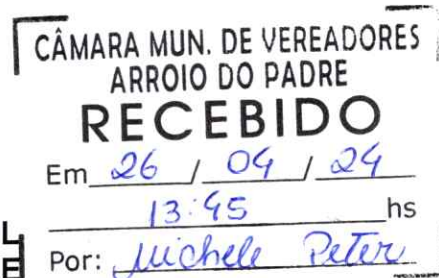 CÂMARA MUN. DE VEREADORES
ARROIO DO PADRE
RECEBIDO
Em 26 / 04 / 24
13:45 hs
Por: Michele Peter